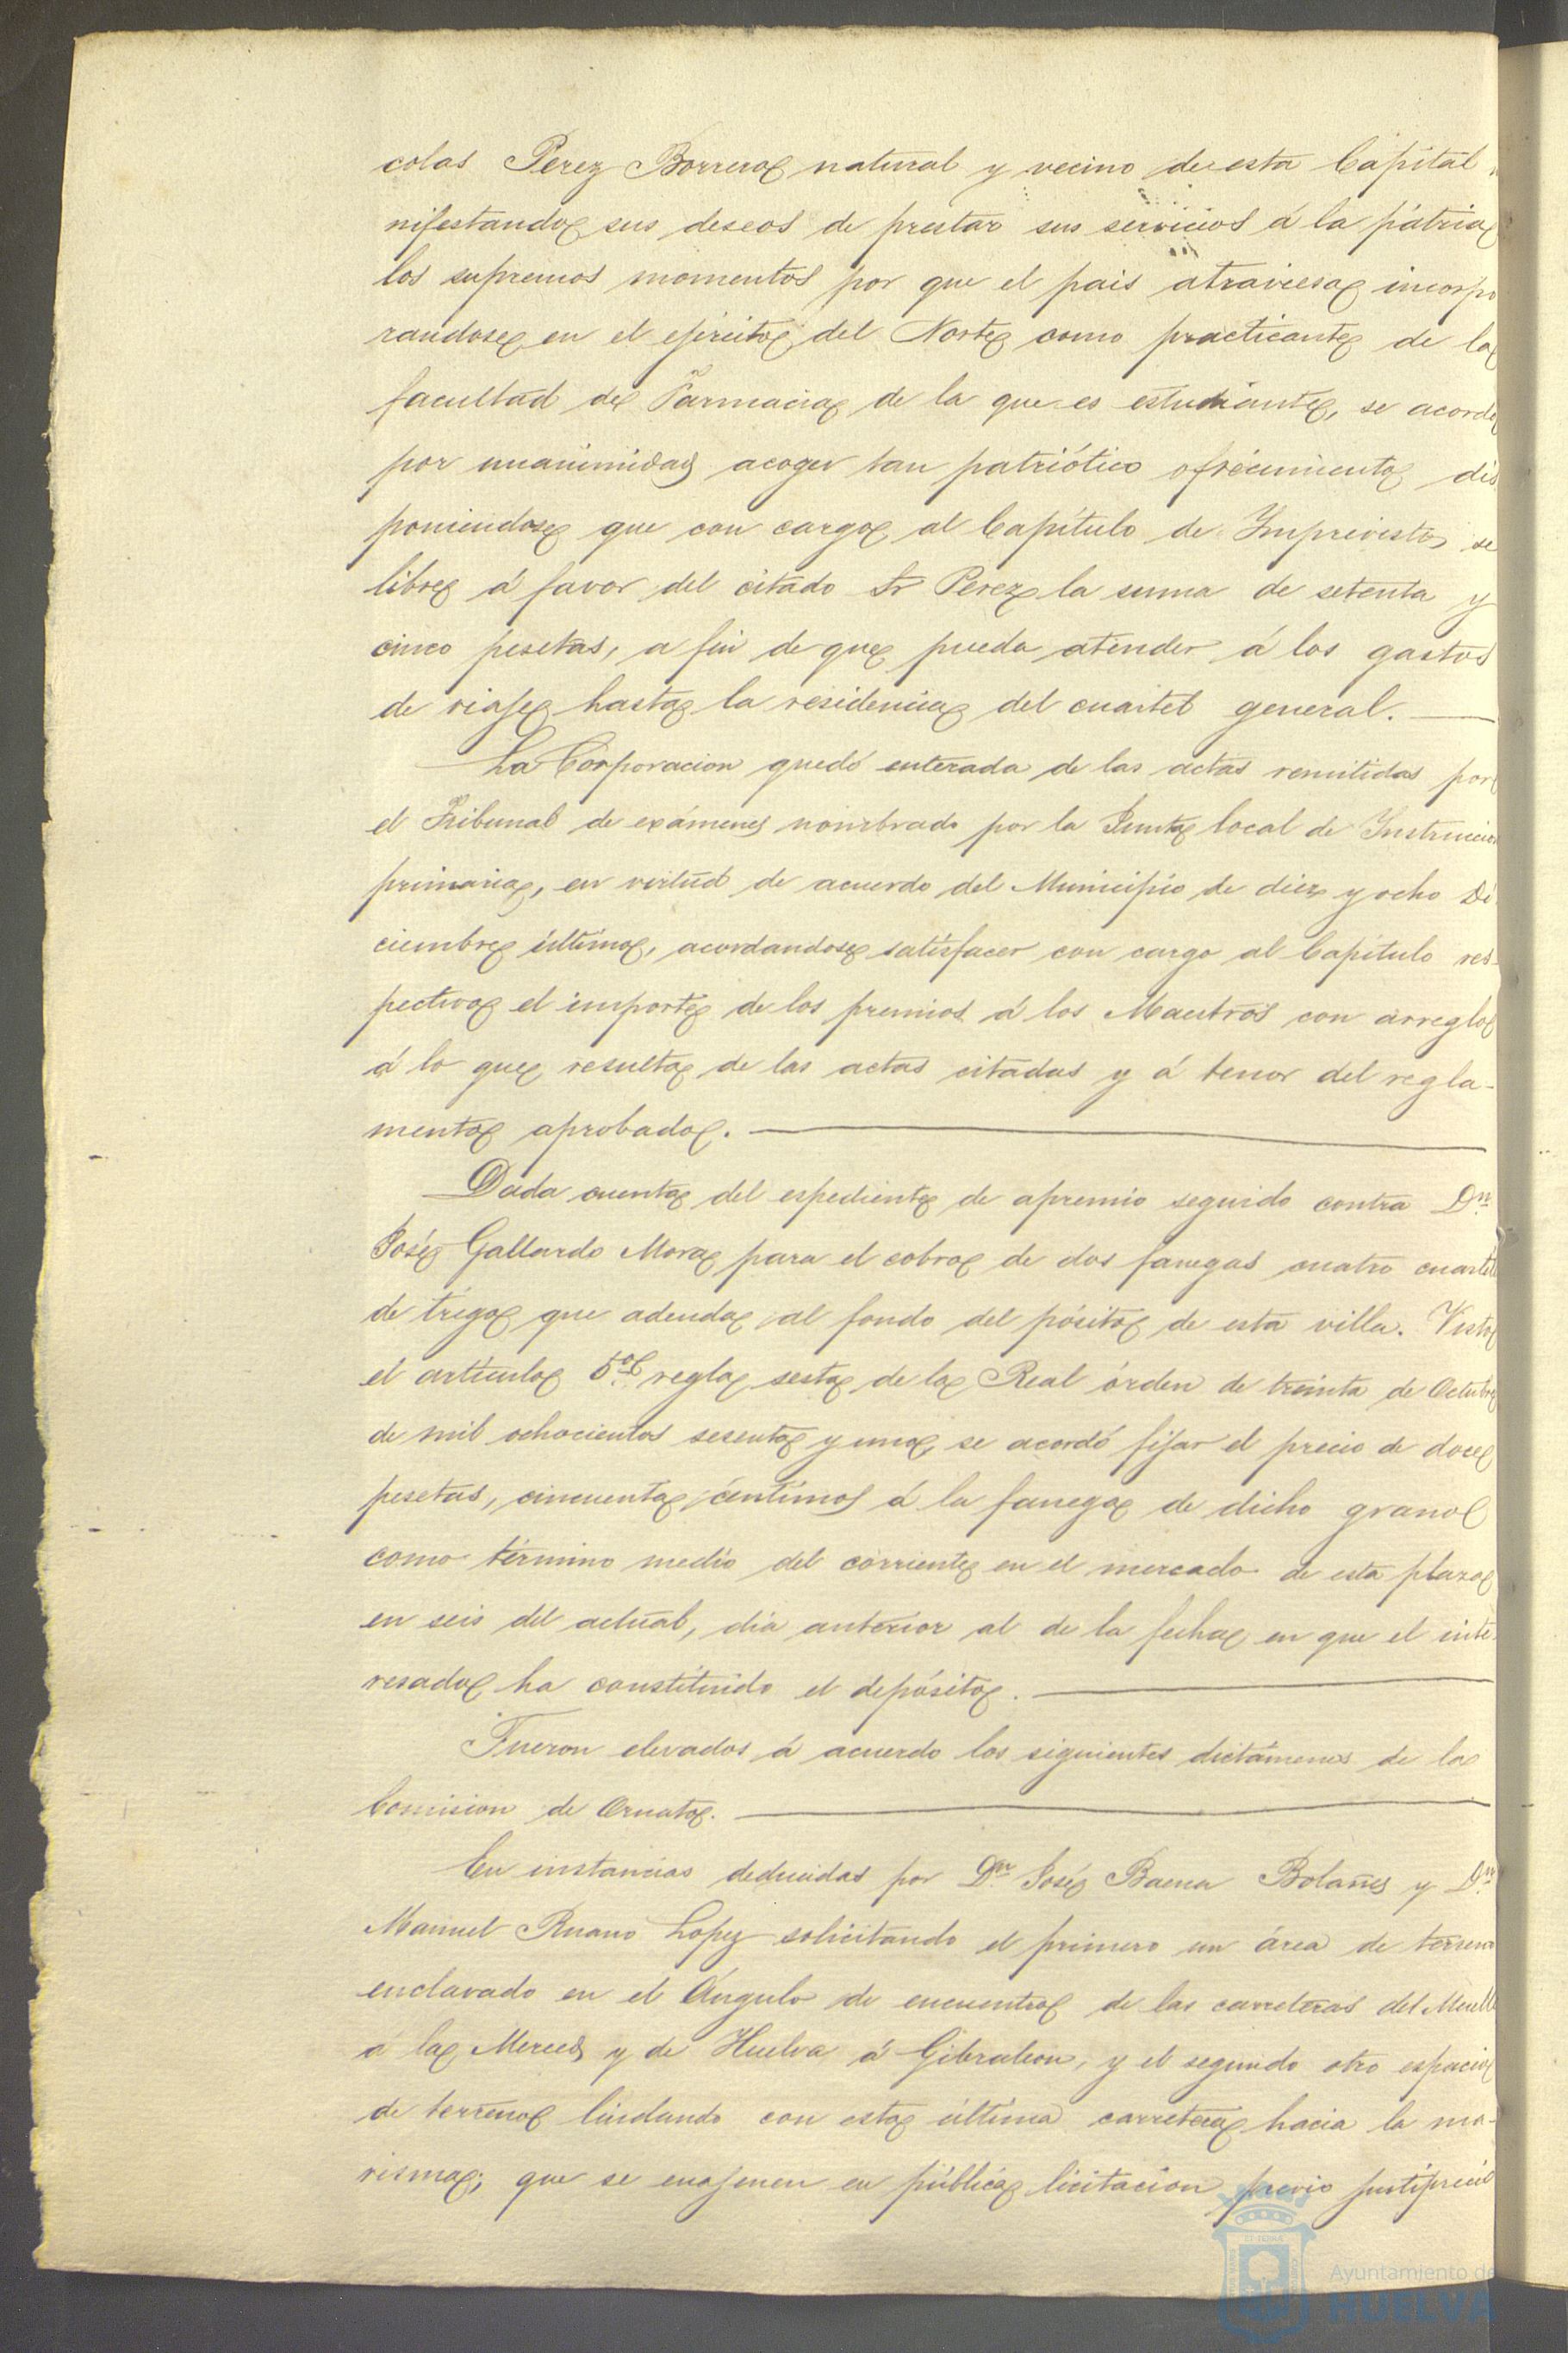 colas Perez Borrero natural y vecino de esta Capital
nifestando sus deseos de prestar sus servicios á la pátria
los supremos momentos por que el pais atraviesa incorpo
randose en el ejército del Norte como practicante de la
facultad de Farmacia de la que es estudiante, se acordó
por unanimidad acoger tan patriótico ofrecimiento dis
poniendose que con cargo al Capítulo de Imprevistos se
libre á favor del citado Sr Perez la suma de setenta y
cinco pesetas, a fin de que pueda atender á los gastos
de viaje hasta la residencia del cuartel general.
La Corporacion quedó enterada de las actas remitidas por
el Tribunal de exámenes nombrado por la Junta local de Instruccion
primaria, en virtud de acuerdo del Municipio de diez y ocho Di
ciembre último, acordandose satisfacer con cargo al Capítulo res-
pectivo el importe de los premios á los Maestros con arreglo
á lo que resulta de las actas citadas y á tenor del regla-
mento aprobado.
Dada cuenta del espediente de apremio seguido contra Dn
José Gallardo Mora para el cobro de dos fanegas cuatro cuartill
de trigo que adeuda al fondo del pósito de esta villa. Visto
el artículo 5º regla sesta de la Real órden de treinta de Octubre
de mil ochocientos sesenta y uno, se acordó fijar el precio de doce
pesetas, cincuenta céntimos á la fanega de dicho grano
como término medio del corriente en el mercado de esta plaza
en seis del actual, dia anterior al de la fecha en que el inte-
resado ha constituido el depósito.
Fueron elevados á acuerdo los siguientes dictámenes de la
Comision de Ornato.
En instancias deducidas por Dn José Baena Bolaños y Dn
Manuel Ruano Lopez solicitando el primero un área de terreno
enclavado en el Ángulo de encuentro de las carreteras del Muelle
á la Merced y de Huelva á Gibraleon, y el segundo otro espacio
de terreno lindando con esta última carretera hacia la ma-
risma; que se enajenen en pública licitacion previo justiprecio
Ayuntamiento de
HUELVA